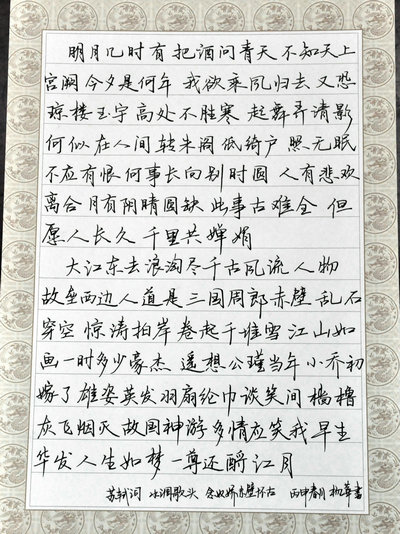 明月几时有 把酒问青天 不知天上
宫阙 今夕是何年 我欲乘风归去 又恐
琼楼玉宇 高处不胜寒 起舞弄清影
何似在人间 转朱阁 低绮户 照无眠
不应有恨 何事长向别时圆 人有悲欢
离合 月有阴晴圆缺 此事古难全 但
愿人长久 千里共婵娟
大江东去 浪淘尽 千古风流人物
故垒西边 人道是 三国周郎赤壁 乱石
穿空 惊涛拍岸 卷起千堆雪 江山如
画 一时多少豪杰 遥想公瑾当年 小乔初
嫁了 雄姿英发 羽扇纶巾 谈笑间 樯橹
灰飞烟灭 故国神游 多情应笑我 早生
华发 人生如梦 一尊还酹江月
苏轼词 水调歌头 念奴娇赤壁怀古 丙申春月 书